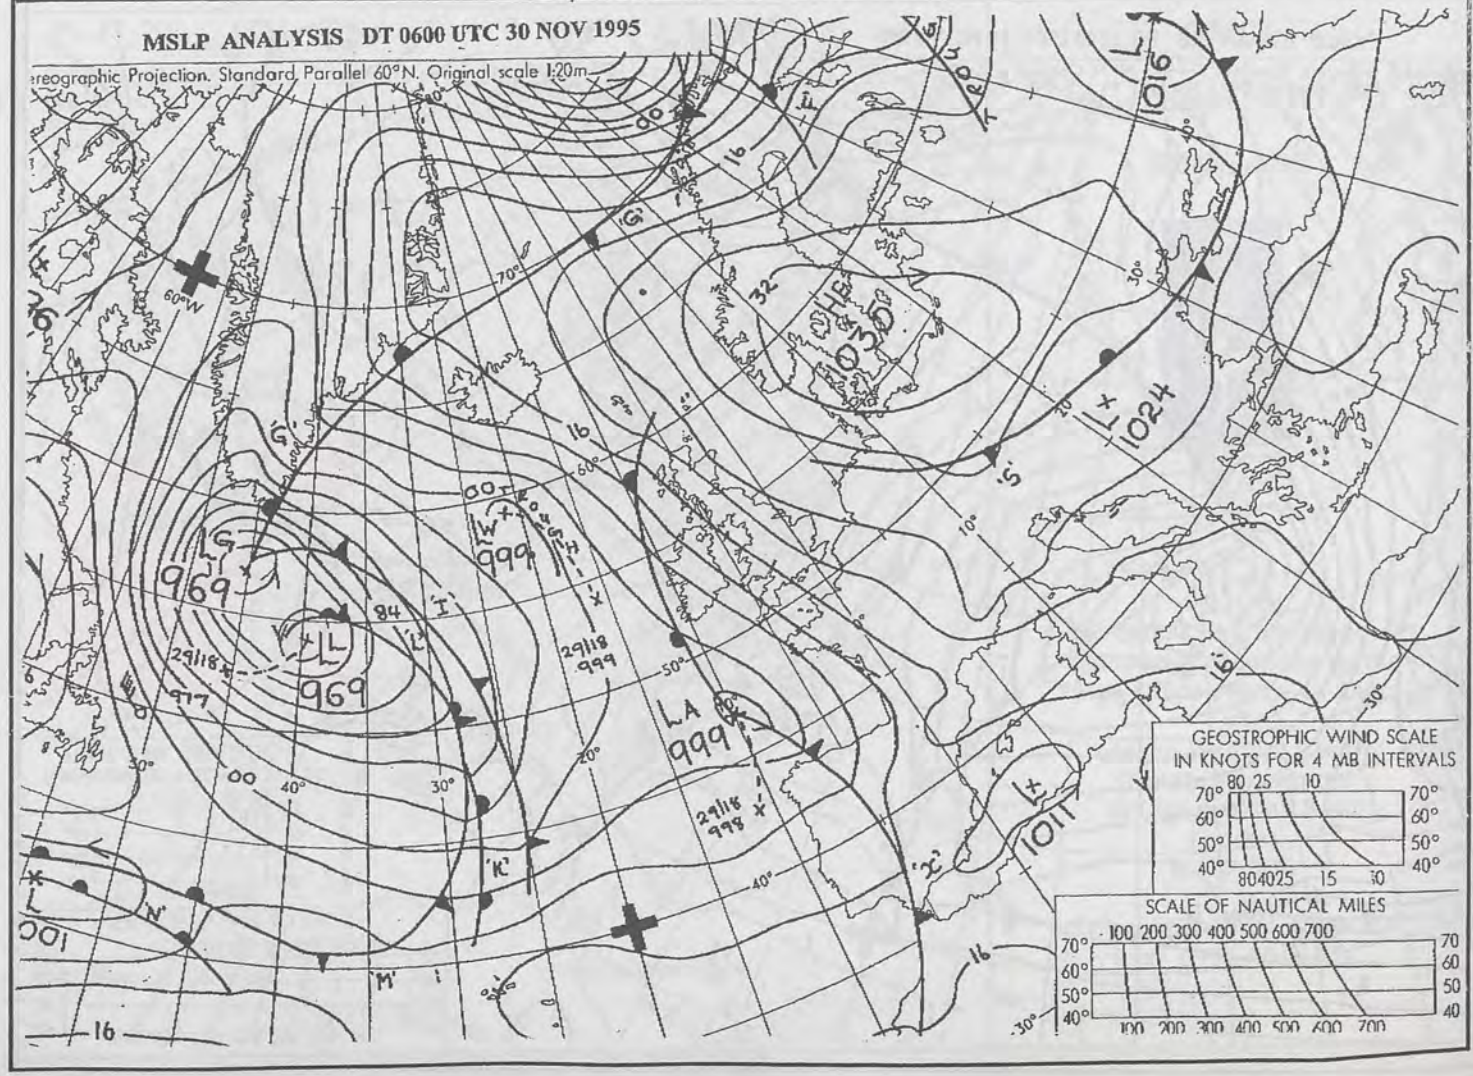 MSLP ANALYSIS DT 0600 UTC 30 NOV 1995
ereographic Projection. Standard Parallel 60°N. Original scale 1:20m
L
1016
TROUGH
00
'F'
16
40°
'G'
60°W
70°
30°
32
HE
1030
20°
L
1024
'G'
16
60°
00
TROUGH
LW
999
'S'
10°
LG
969
84
'I'
'L'
29/18
977
LL
969
29/18
999
50°
LA
999
'16'
30°
50°
00
40°
30°
20°
29/18
998
L
1011
'K'
40°
'X'
L
1001
'N'
'M'
16
16
30°
GEOSTROPHIC WIND SCALE
IN KNOTS FOR 4 MB INTERVALS
80 25 10
70° 70°
60° 60°
50° 50°
40° 40°
80 40 25 15 10
SCALE OF NAUTICAL MILES
100 200 300 400 500 600 700
70° 70
60° 60
50° 50
40° 40
100 200 300 400 500 600 700